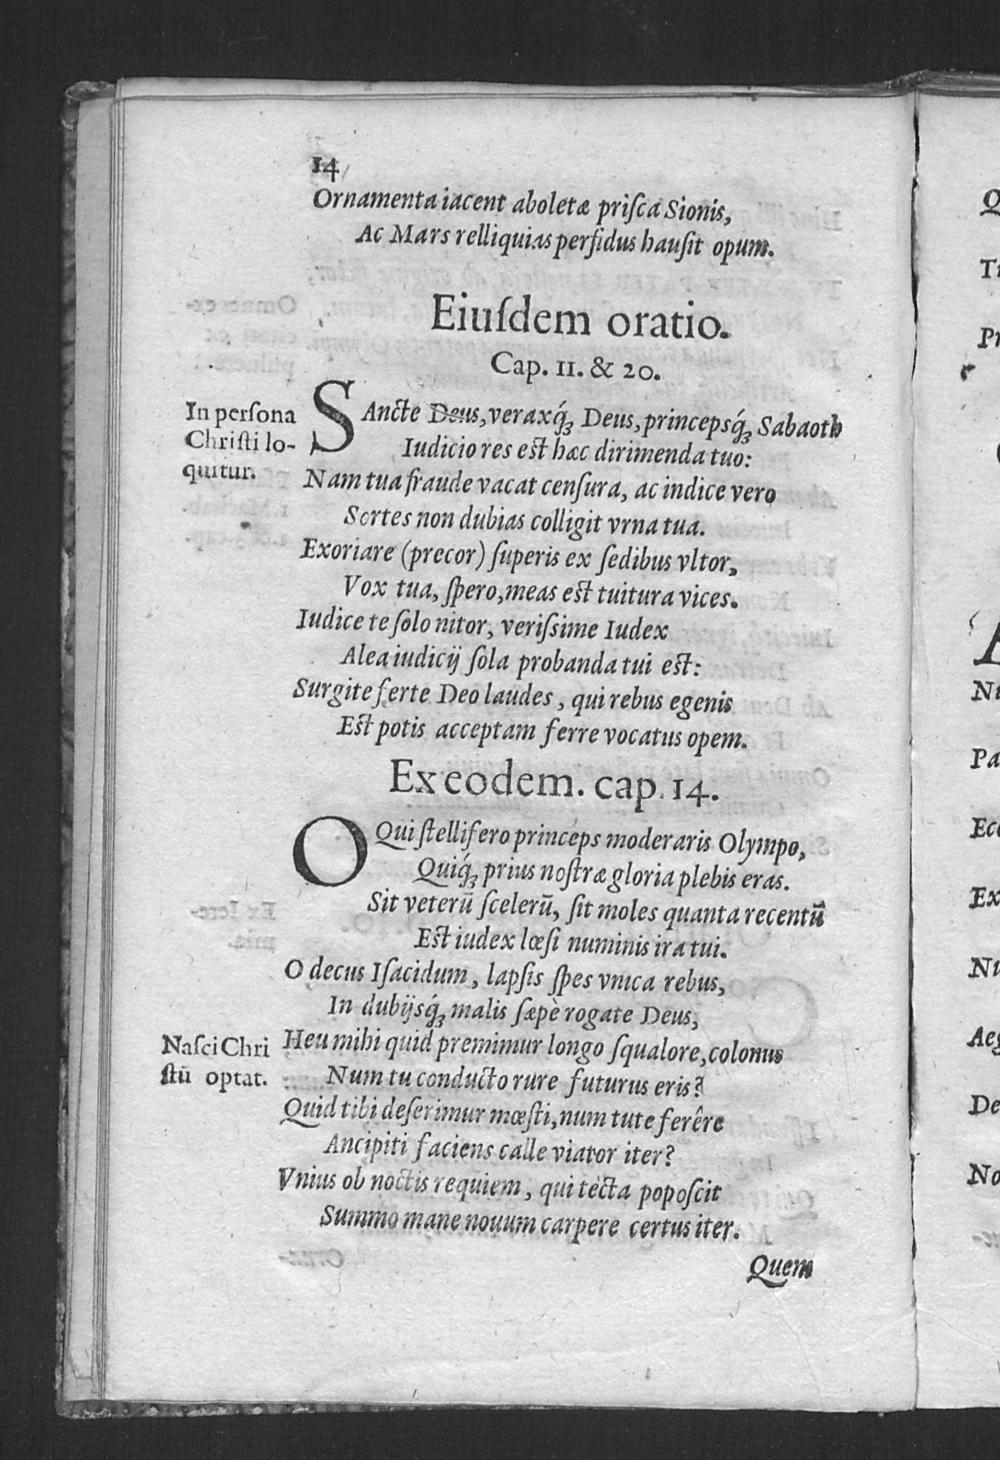 14
Ornamenta iacent aboletæ priſca Sionis,
Ac Mars relliquias perfidus hauſit opum.
Eiuſdem oratio.
Cap. 11. & 20.
In perſona
Chriſti lo-
quitur.
SAncte Deus, veraxq́ꝫ Deus, princepsq́ꝫ Sabaoth
Iudicio res eſt hæc dirimenda tuo:
Nam tua fraude vacat cenſura, ac indice vero
Sortes non dubias colligit vrna tua.
Exoriare (precor) ſuperis ex ſedibus vltor,
Vox tua, ſpero, meas eſt tuitura vices.
Iudice te ſolo nitor, veriſsime Iudex
Alea iudicij ſola probanda tui eſt:
Surgite ferte Deo laudes, qui rebus egenis
Eſt potis acceptam ferre vocatus opem.
Ex eodem. cap. 14.
O Qui ſtellifero princeps moderaris Olympo,
Quiq́ꝫ prius noſtræ gloria plebis eras.
Sit veterū ſcelerū, ſit moles quanta recentū
Eſt iudex lœſi numinis ira tui.
O decus Iſacidum, lapſis ſpes vnica rebus,
In dubijsq́ꝫ malis ſæpè rogate Deus,
Naſci Chri
ſtū optat.
Heu mihi quid premimur longo ſqualore, colonus
Num tu conducto rure futurus eris?
Quid tibi deſerimur mœſti, num tute ferêre
Ancipiti faciens calle viator iter?
Vnius ob noctis requiem, qui tècta popoſcit
Summo mane nouum carpere certus iter.
Quem